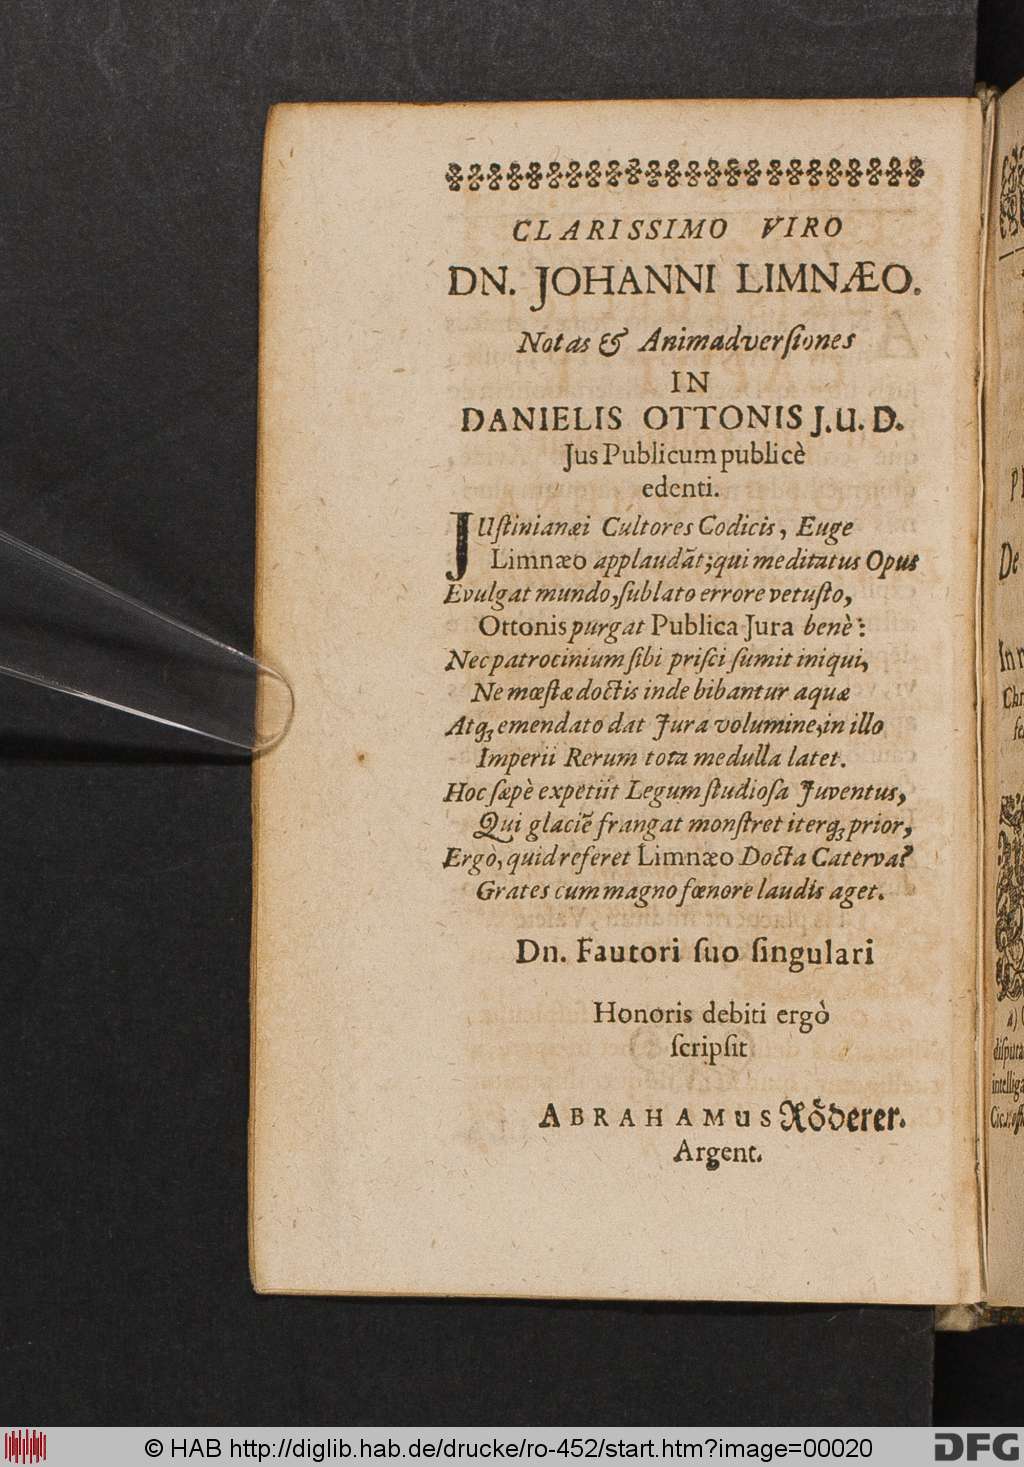 CLARISSIMO VIRO
DN. JOHANNI LIMNÆO.
Notas & Animadverſiones
IN
DANIELIS OTTONIS J.U.D.
Jus Publicum publicè
edenti.
JUſtinianæi Cultores Codicis, Euge
Limnæo applaudāt; qui meditatus Opus
Evulgat mundo, ſublato errore vetuſto,
Ottonis purgat Publica Jura benè:
Nec patrocinium ſibi priſci ſumit iniqui,
Ne mœſtæ doctis inde bibantur aquæ
Atq; emendato dat Jura volumine, in illo
Imperii Rerum tota medulla latet.
Hoc ſæpè expetiit Legum ſtudioſa Juventus,
Qui glaciē frangat monſtret iterq; prior,
Ergò, quid referet Limnæo Docta Caterva?
Grates cum magno fœnore laudis aget.
Dn. Fautori ſuo ſingulari
Honoris debiti ergò
ſcripſit
ABRAHAMUS Röderer.
Argent.
De
In
Chr
a)
diſputa
intellig
© HAB http://diglib.hab.de/drucke/ro-452/start.htm?image=00020
DFG